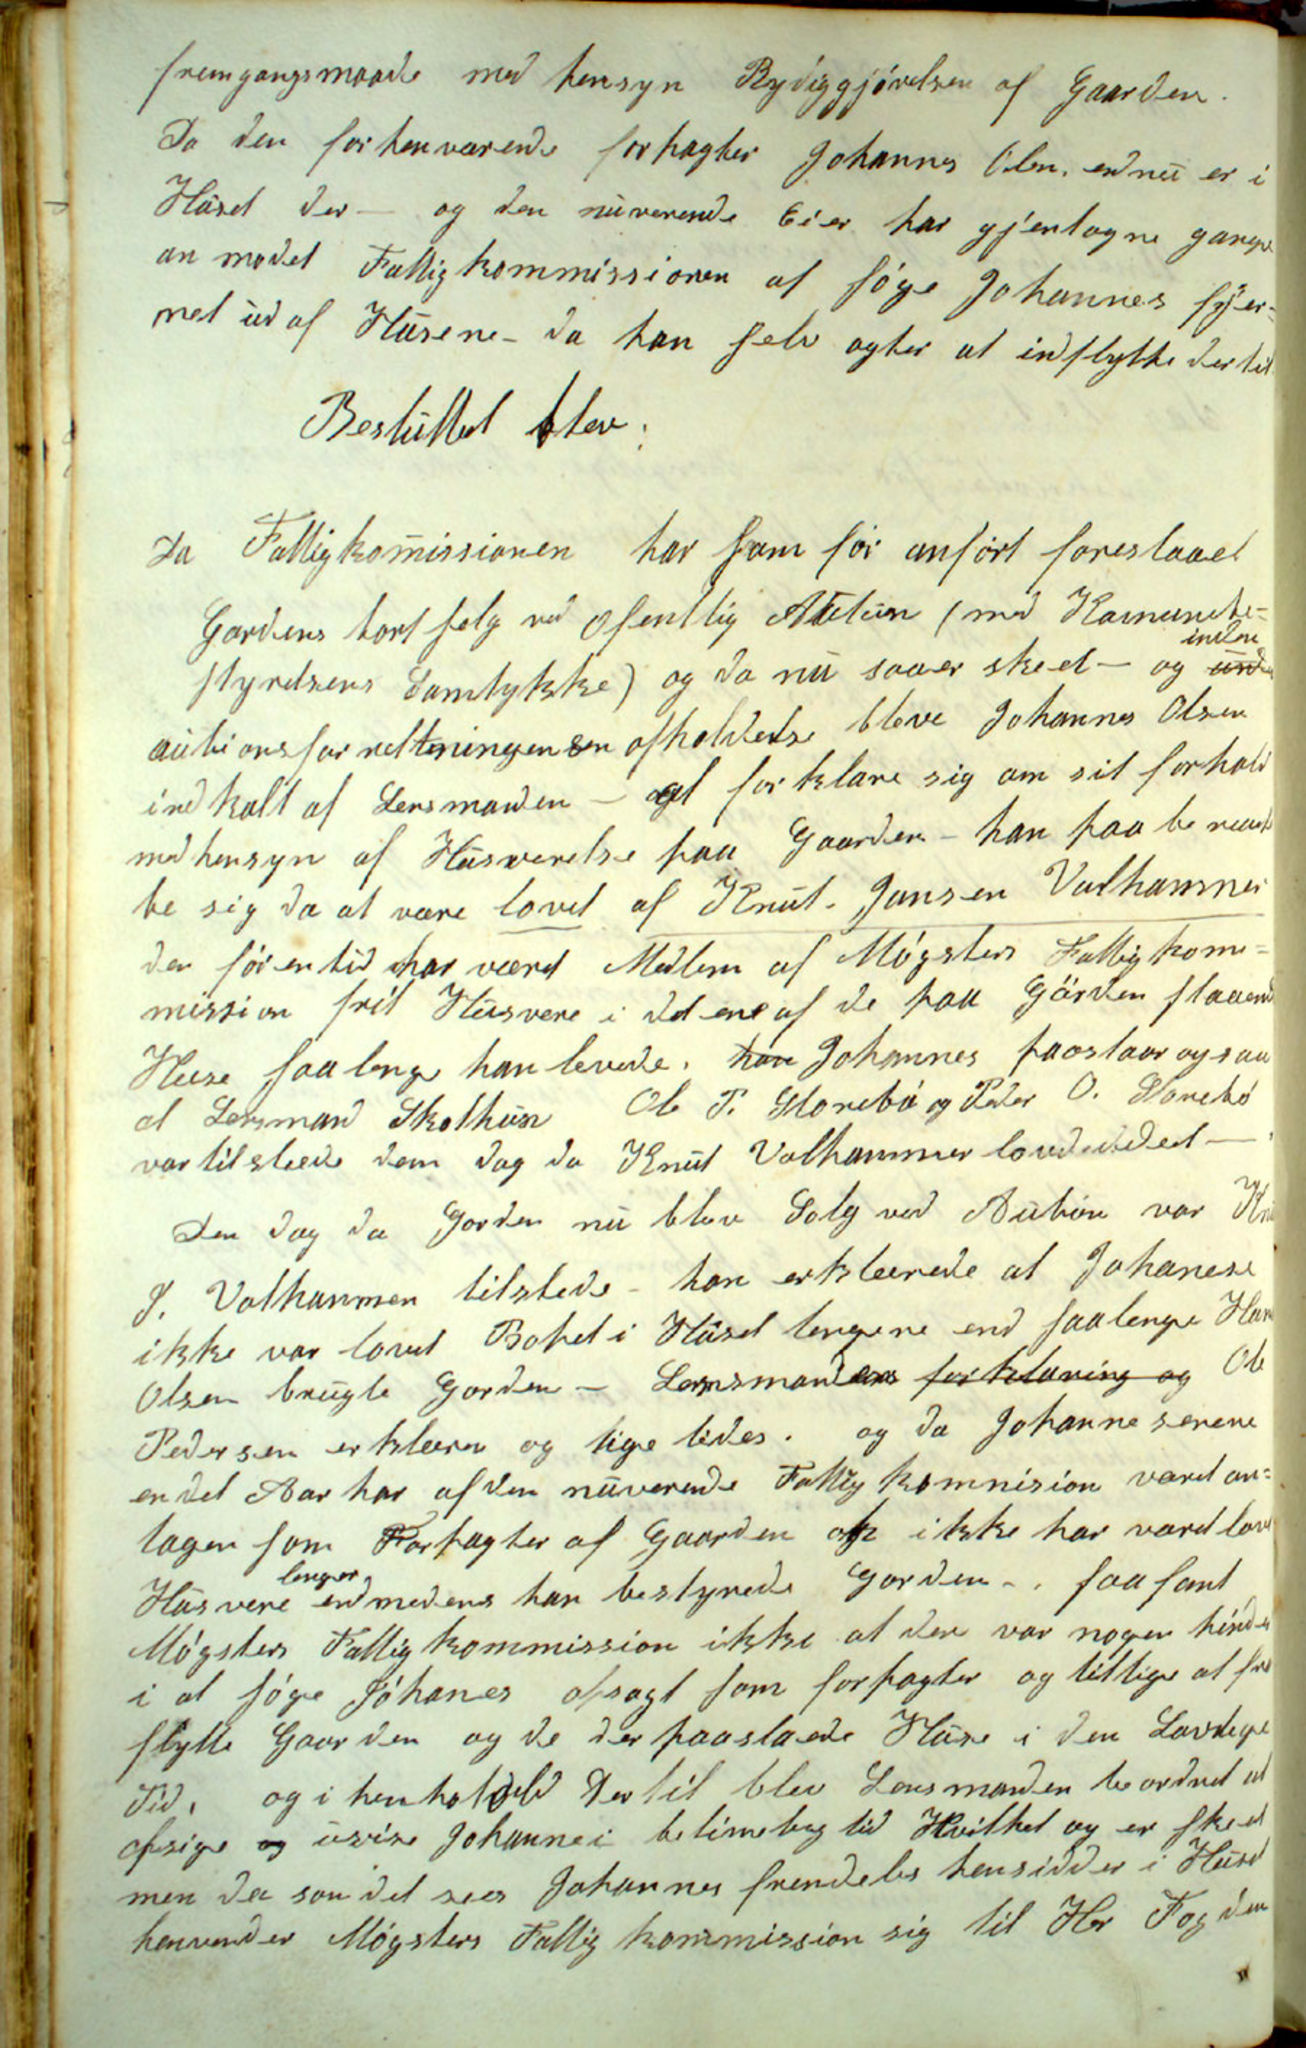 fremgangsmaade med hensyn Rydiggjørelsen af Gaarden.
Da den forhenværende forpagter Johannes Olsn. endnu er i
Huset der — og den nuverende Eier har gjentagne gange
an modet Fattigkommissionen at søge Johannes fjer-
net ud af Husene - da han selv agter at indflytte dertil
Besluttet blev:
Da Fattigkommissionen har som før anført foreslaaet
Gardens bortsalg ved ofentlig Auktion (med Komunebe-
styrelsens Samtykke) og da nu saaer skeet — og inden
auktionsforretteningensen afholdelse bleve Johannes Olsen
indkalt af Lensmanden — at forklare sig om sit forhold
med hensyn af Husverelse paa Gaarden - han paa be raab
te sig da at være lovet af Knut. Jansen Valhammer
den før en tid har været Medlem af Møgsters Fattigkom-
mission frit Husvere i det ene af de paa Gården staaend
Huse saalenge han levede. han Johannes paastaar ogsaa
at Lensmand Skolhus Ole P. Storebø og Peder O. Storebø
var tilstede dem dag da Knut Valhammer lovede ded —
Den dag da Gorden nu blev Solg ved Auktion var Kn
J. Valhammen tilstede - han erklærede at Johanese
ikke var lovet Bopel i Huset lengere end saalenge Han
Olsen brugte Gorden — Lensmandens forklaring og Ole
Pedersen erklærer og lige ledes. og da Johannes senere
endel Aar har af den nuverende Fattig komnision været an-
tagen som Forpagter af Gaarden og ikke har været lov
Husvere lenger end medens han bestyrede Gorden -. saa fant
Møgsters Fattigkommission ikke at der var nogen hinder
i at søge Johanes opsagt som forpagter og tillige at fra
flytte Gaarden og de der paastaaede Huse i den Lovlige
Tid. og i henhold Der til blev Lensmanden beordret at
opsige og uvise Johanne i belimelig tid Hvilket og er skeet
men da som det sees Johannes fremdeles hensidder i Huset
henvender Møgsters Fattig kommission sig til Hr Fogden